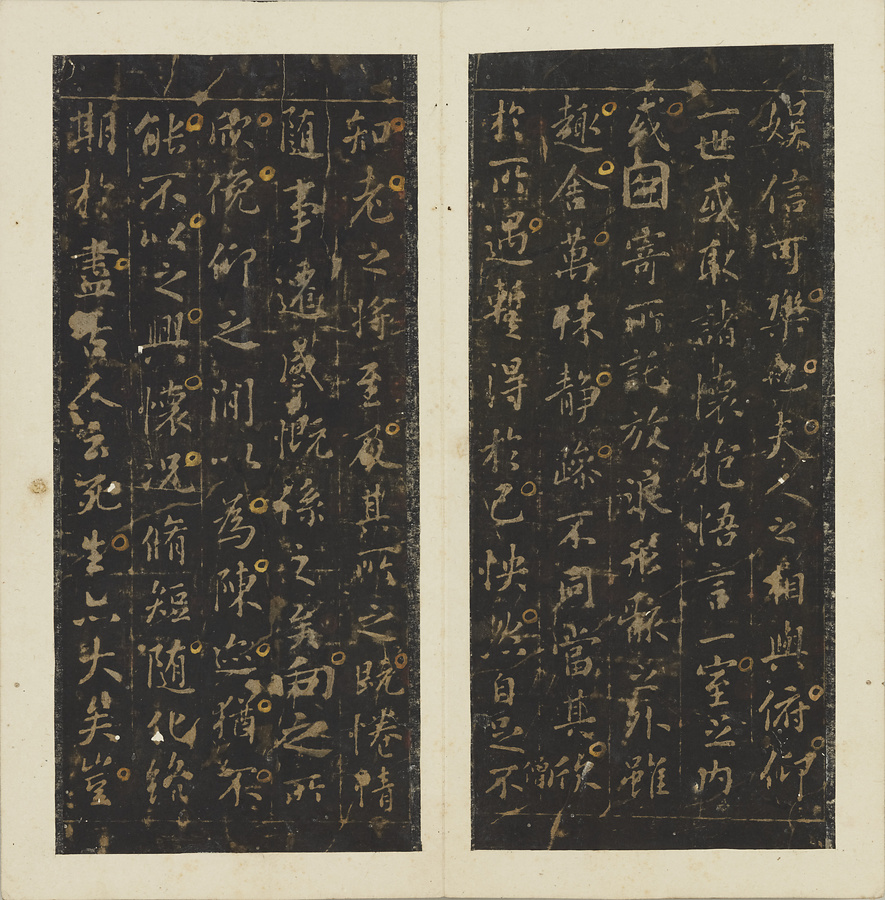 娛信可樂也夫人之相與俯仰
一世或取諸懷抱悟言一室之內
或因寄所託放浪形骸之外雖
趣舍萬殊靜躁不同當其欣
僧
於所遇蹔得於己怏然自足不
知老之將至及其所之既惓情
隨事遷感慨係之矣向之所
欣俛仰之間以為陳迹猶不
能不以之興懷況脩短隨化終
期於盡古人云死生亦大矣豈